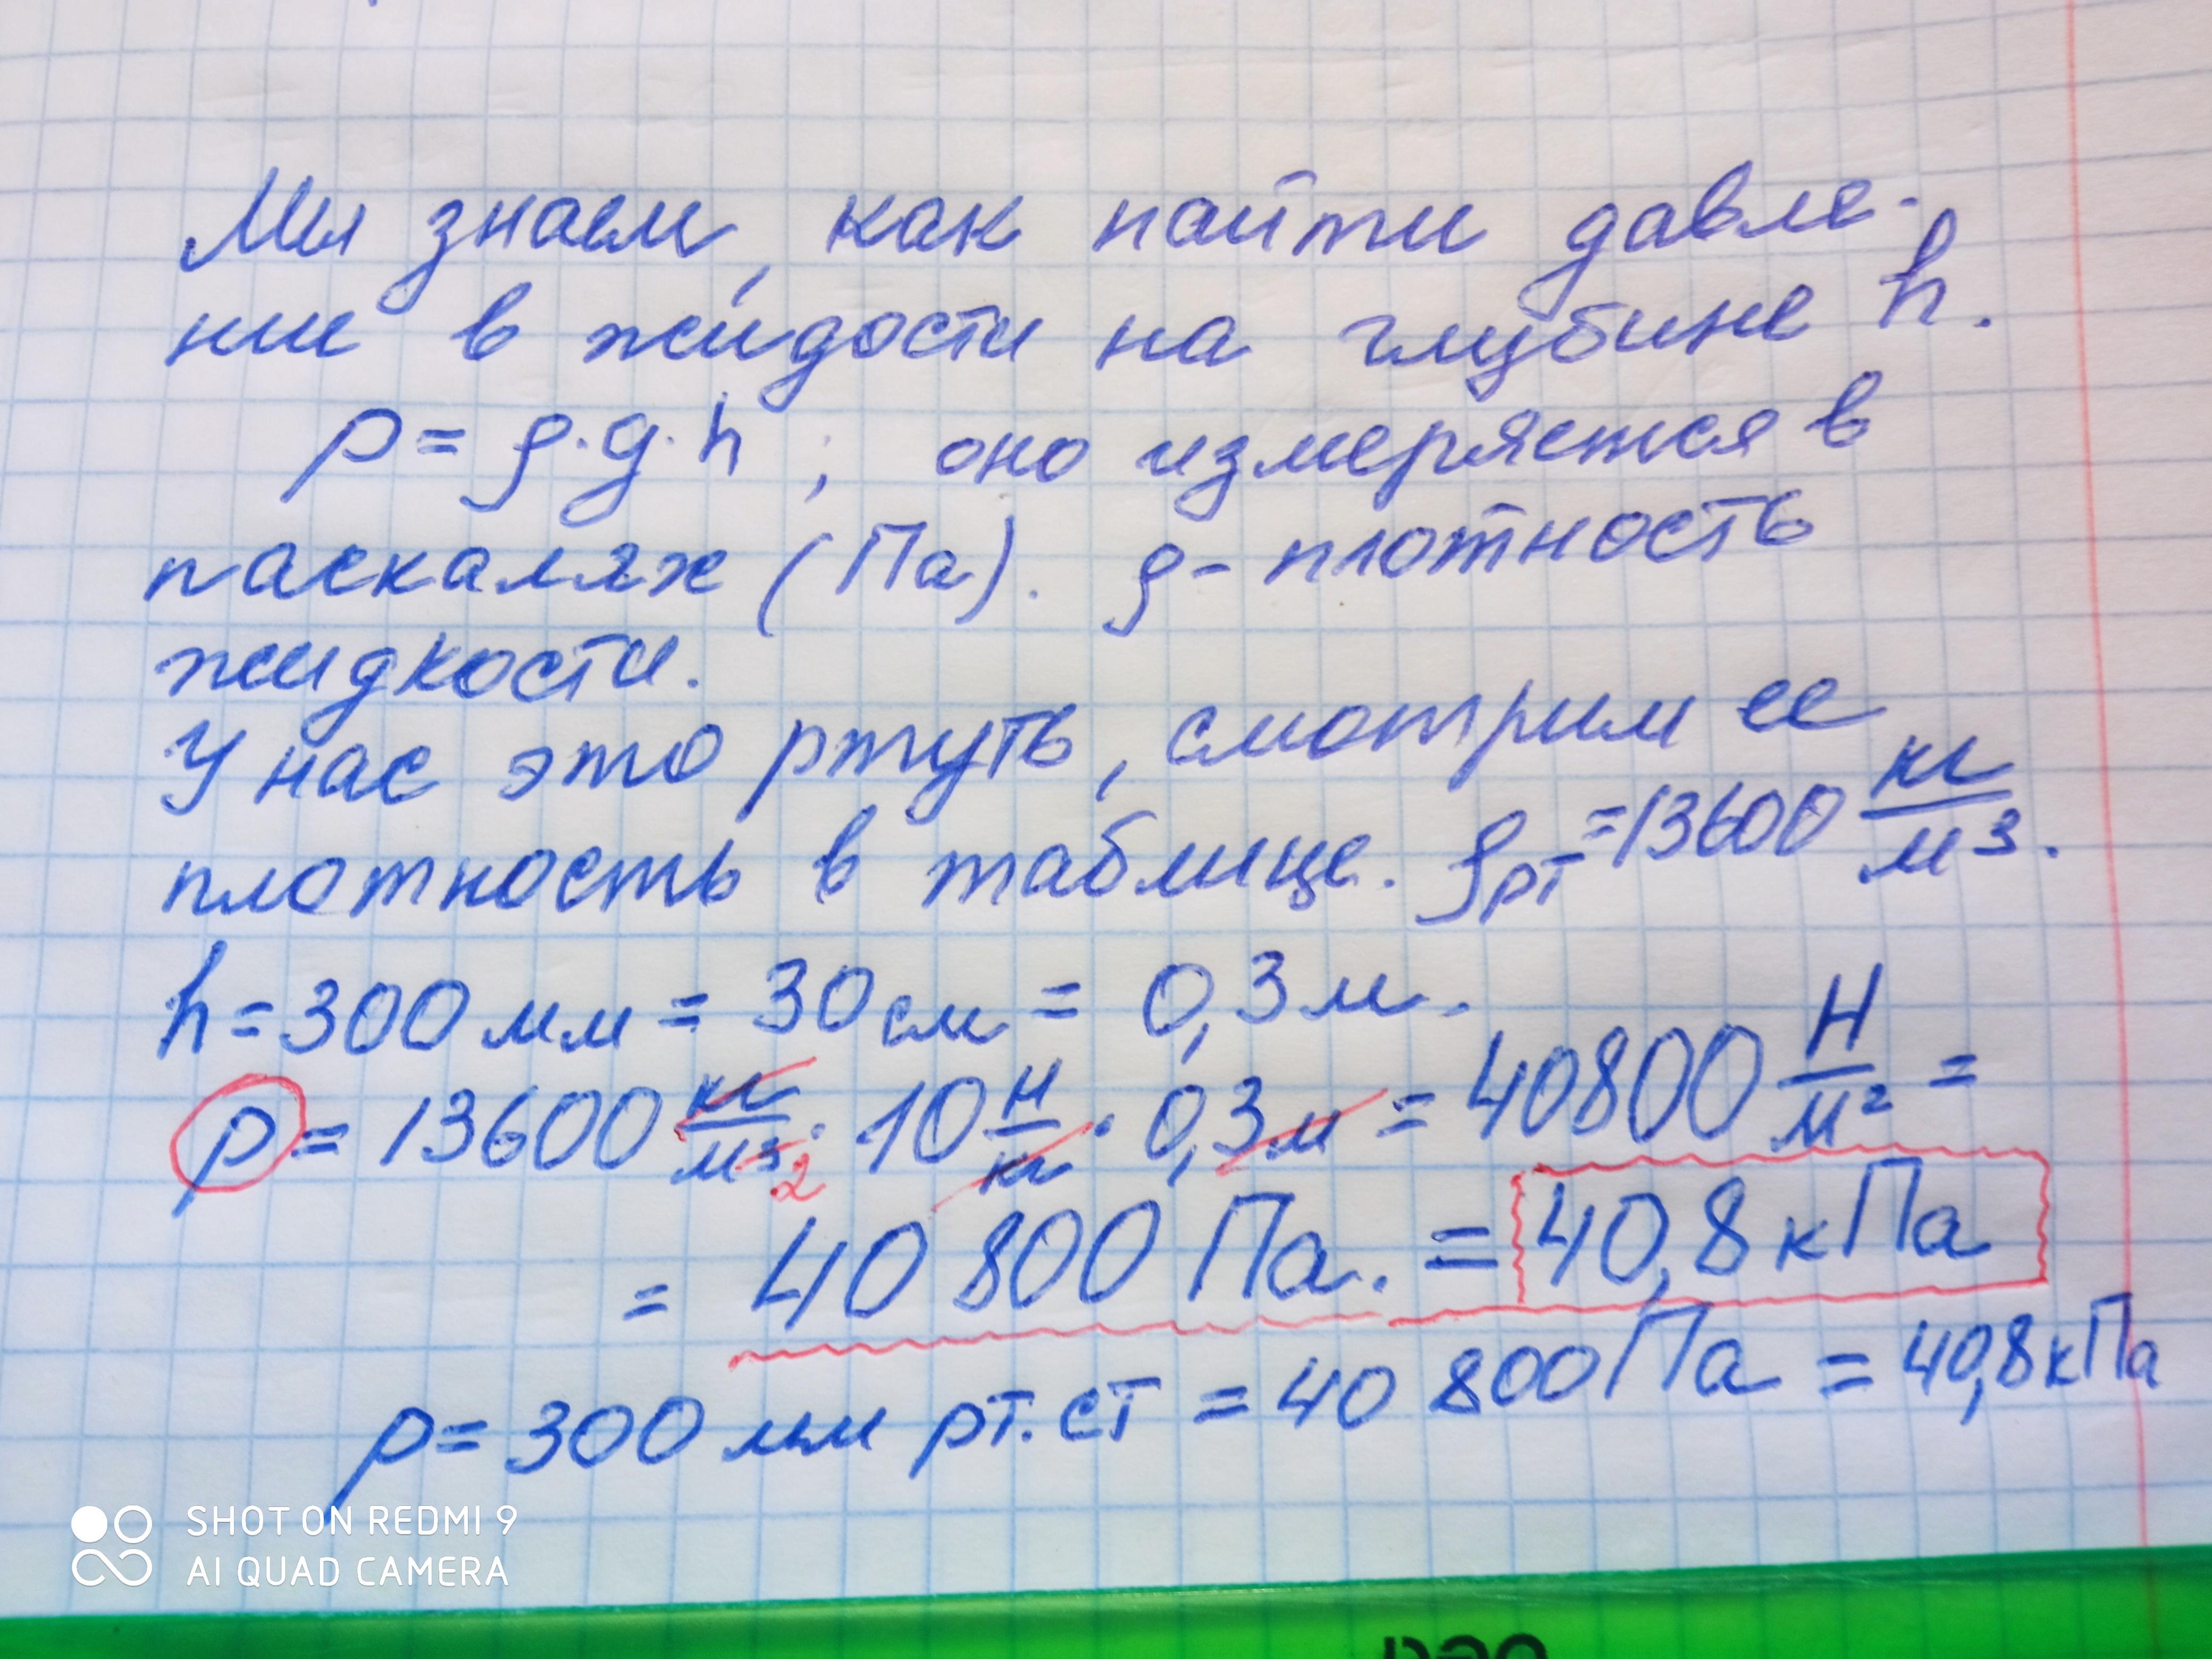 Мы знаем, как найти давле-
ние в жидости на глубине h.
p = ρ·g·h ; оно измеряется в
паскалях (Па). ρ - плотность
жидкости.
У нас это ртуть, смотрим ее
плотность в таблице. ρрт = 13600 кг/м³.
h = 300 мм = 30 см = 0,3 м.
p = 13600 кг/м³ 2 · 10 Н/кг · 0,3 м = 40800 Н/м² =
= 40 800 Па. = 40,8 кПа
p = 300 мм рт. ст = 40 800 Па = 40,8 кПа
SHOT ON REDMI 9
AI QUAD CAMERA